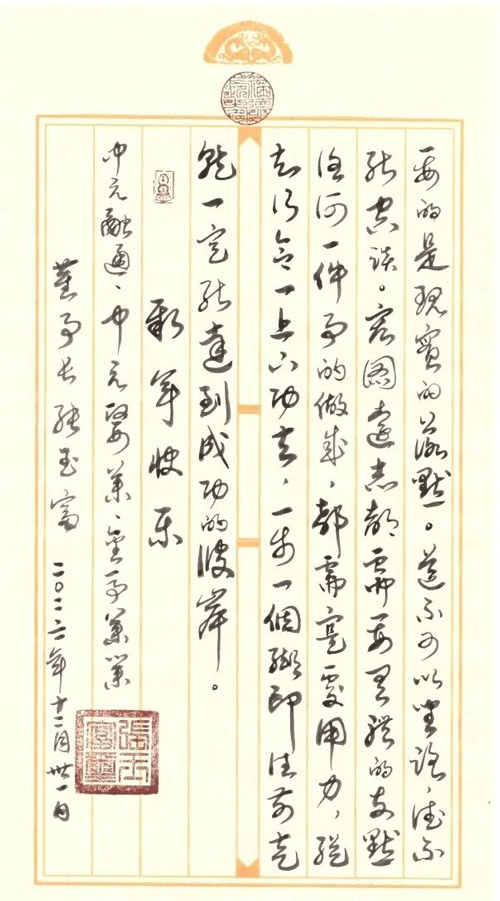 要的是現實的落點。道不可以坐論,德不
能空談。宏圖遠志都需要具體的支點
任何一件事的做成,都需實處用力,從
知行合一上下功夫,一步一個腳印往前走
就一定能達到成功的彼岸。
新年快樂
中元融通、中元
董事長張玉富 二〇二六年十二月卅一日